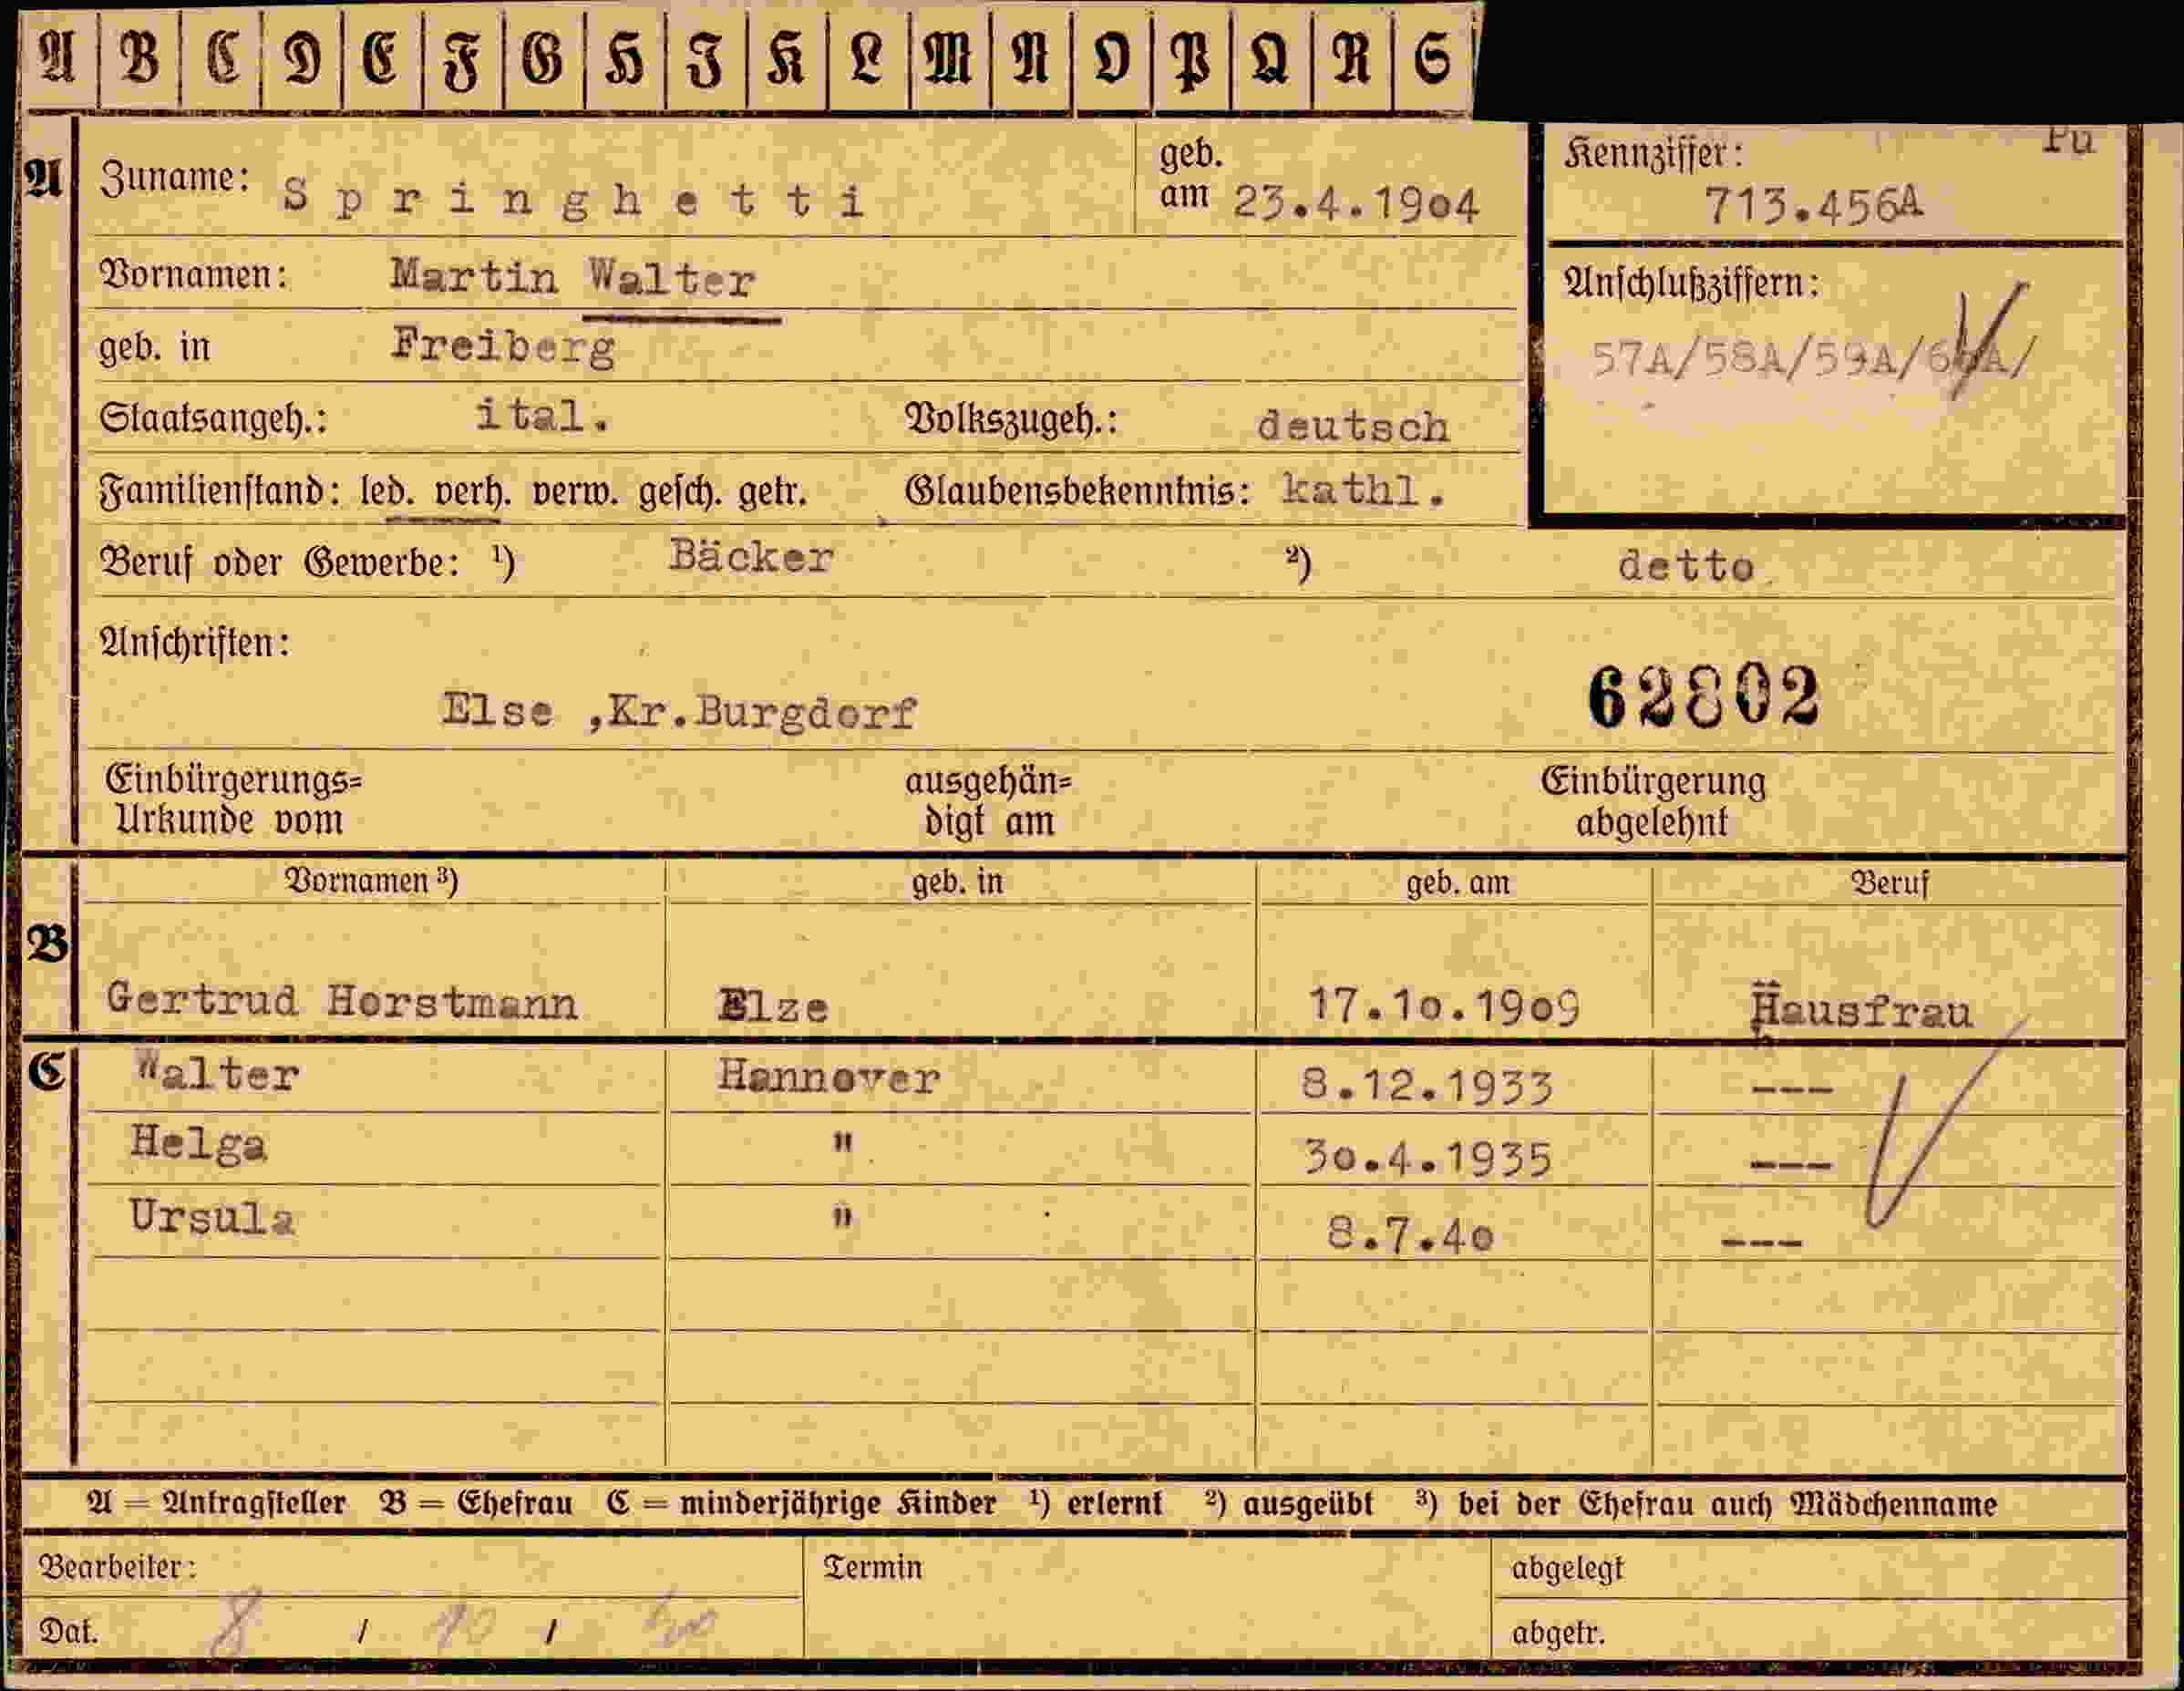 A B C D E F G H I K L M N O P Q R S
A Zuname: Springhetti geb. am 23.4.1904 Kennziffer: 713.456A
Vornamen: Martin Walter Anschlußziffern:
geb. in Freiberg 57A/58A/59A/
Staatsangeh.: ital. Volkszugeh.: deutsch
Familienstand: led. verh. verw. gesch. getr. Glaubensbekenntnis: kathl.
Beruf oder Gewerbe: ¹) Bäcker ²) detto
Anschriften:
Else ,Kr.Burgdorf 62802
Einbürgerungs= ausgehän= Einbürgerung
Urkunde vom digt am abgelehnt
Vornamen ³) geb. in geb. am Beruf
B
Gertrud Horstmann Elze 17.10.1909 Hausfrau
C Walter Hannover 8.12.1933 ---
Helga " 30.4.1935 ---
Ursula " 8.7.40 ---
A = Antragsteller B = Ehefrau C = minderjährige Kinder ¹) erlernt ²) ausgeübt ³) bei der Ehefrau auch Mädchenname
Bearbeiter: Termin abgelegt
Dat. 8 / 10 / abgetr.